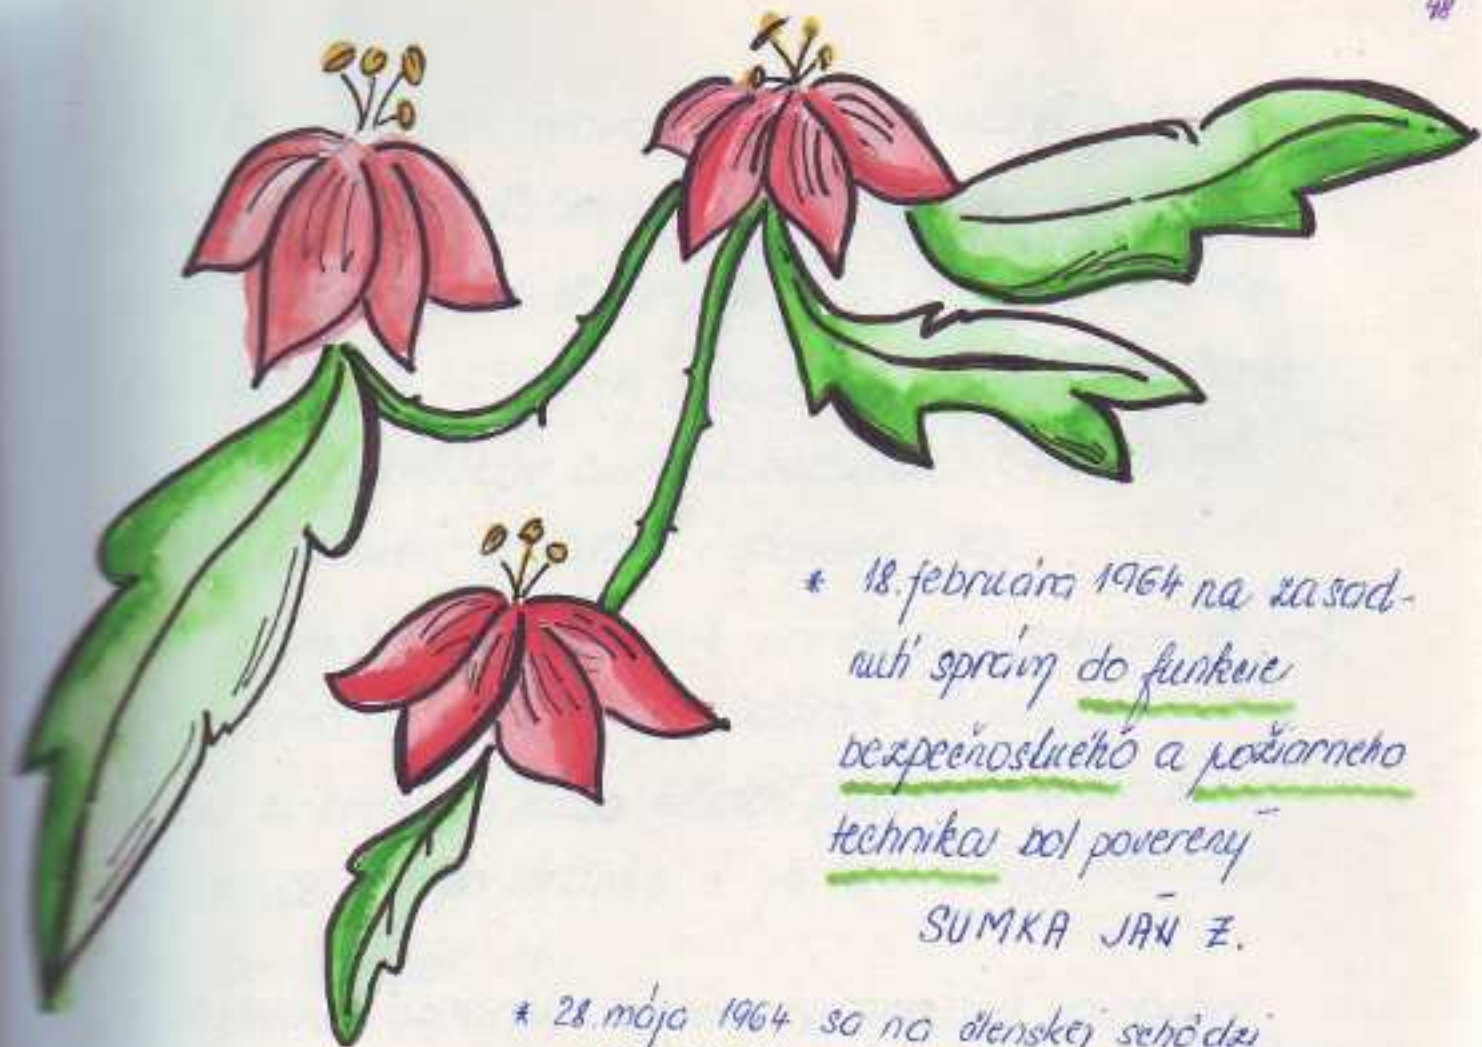 48
* 18. februára 1964 na zasad-
nutí správy do funkcie
bezpečnostného a požiarneho
technika bol poverený
SUMKA JÁN Z.
* 28. mája 1964 sa na členskej schôdzi